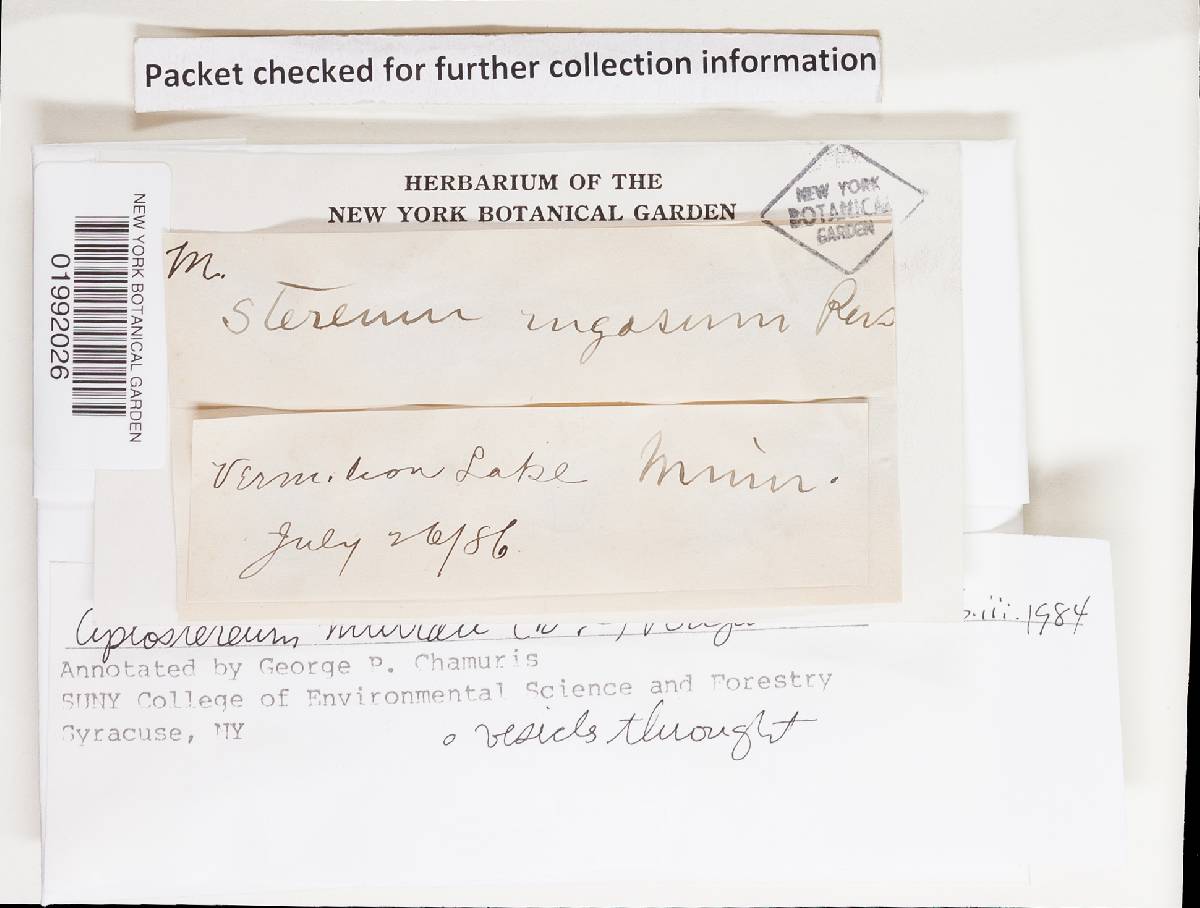 Packet checked for further collection information
HERBARIUM OF THE
NEW YORK BOTANICAL GARDEN
NEW YORK
BOTANICAL
GARDEN
NEW YORK BOTANICAL GARDEN
01992026
M.
Stereum rugosum Pers
Vermilion Lake Minn.
July 26/86
iii.1984
Annotated by George P. Chamuris
SUNY College of Environmental Science and Forestry
Syracuse, NY
vesicls throught